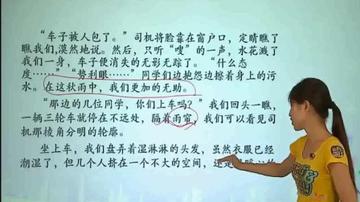 “车子被人包了。”司机将脸靠在窗户口，定睛瞧
了瞧我们，漠然地说。然后，只听“嗖”的一声，水花溅了
我们一身，车子便消失的无影无踪了。“什么态
度……”“势利眼……”同学们边抱怨边擦着身上的污
水。在这秋雨中，我们更加的无助。
“那边的几位同学，你们上车吗？”我们回头一瞧，
一辆三轮车就停在不远处，隔着雨帘，我们可以看见司
机那棱角分明的轮廓。
坐上车，我们盘弄着湿淋淋的头发，虽然衣服已经
潮湿了，但几个人挤在一个不大的空间，还是